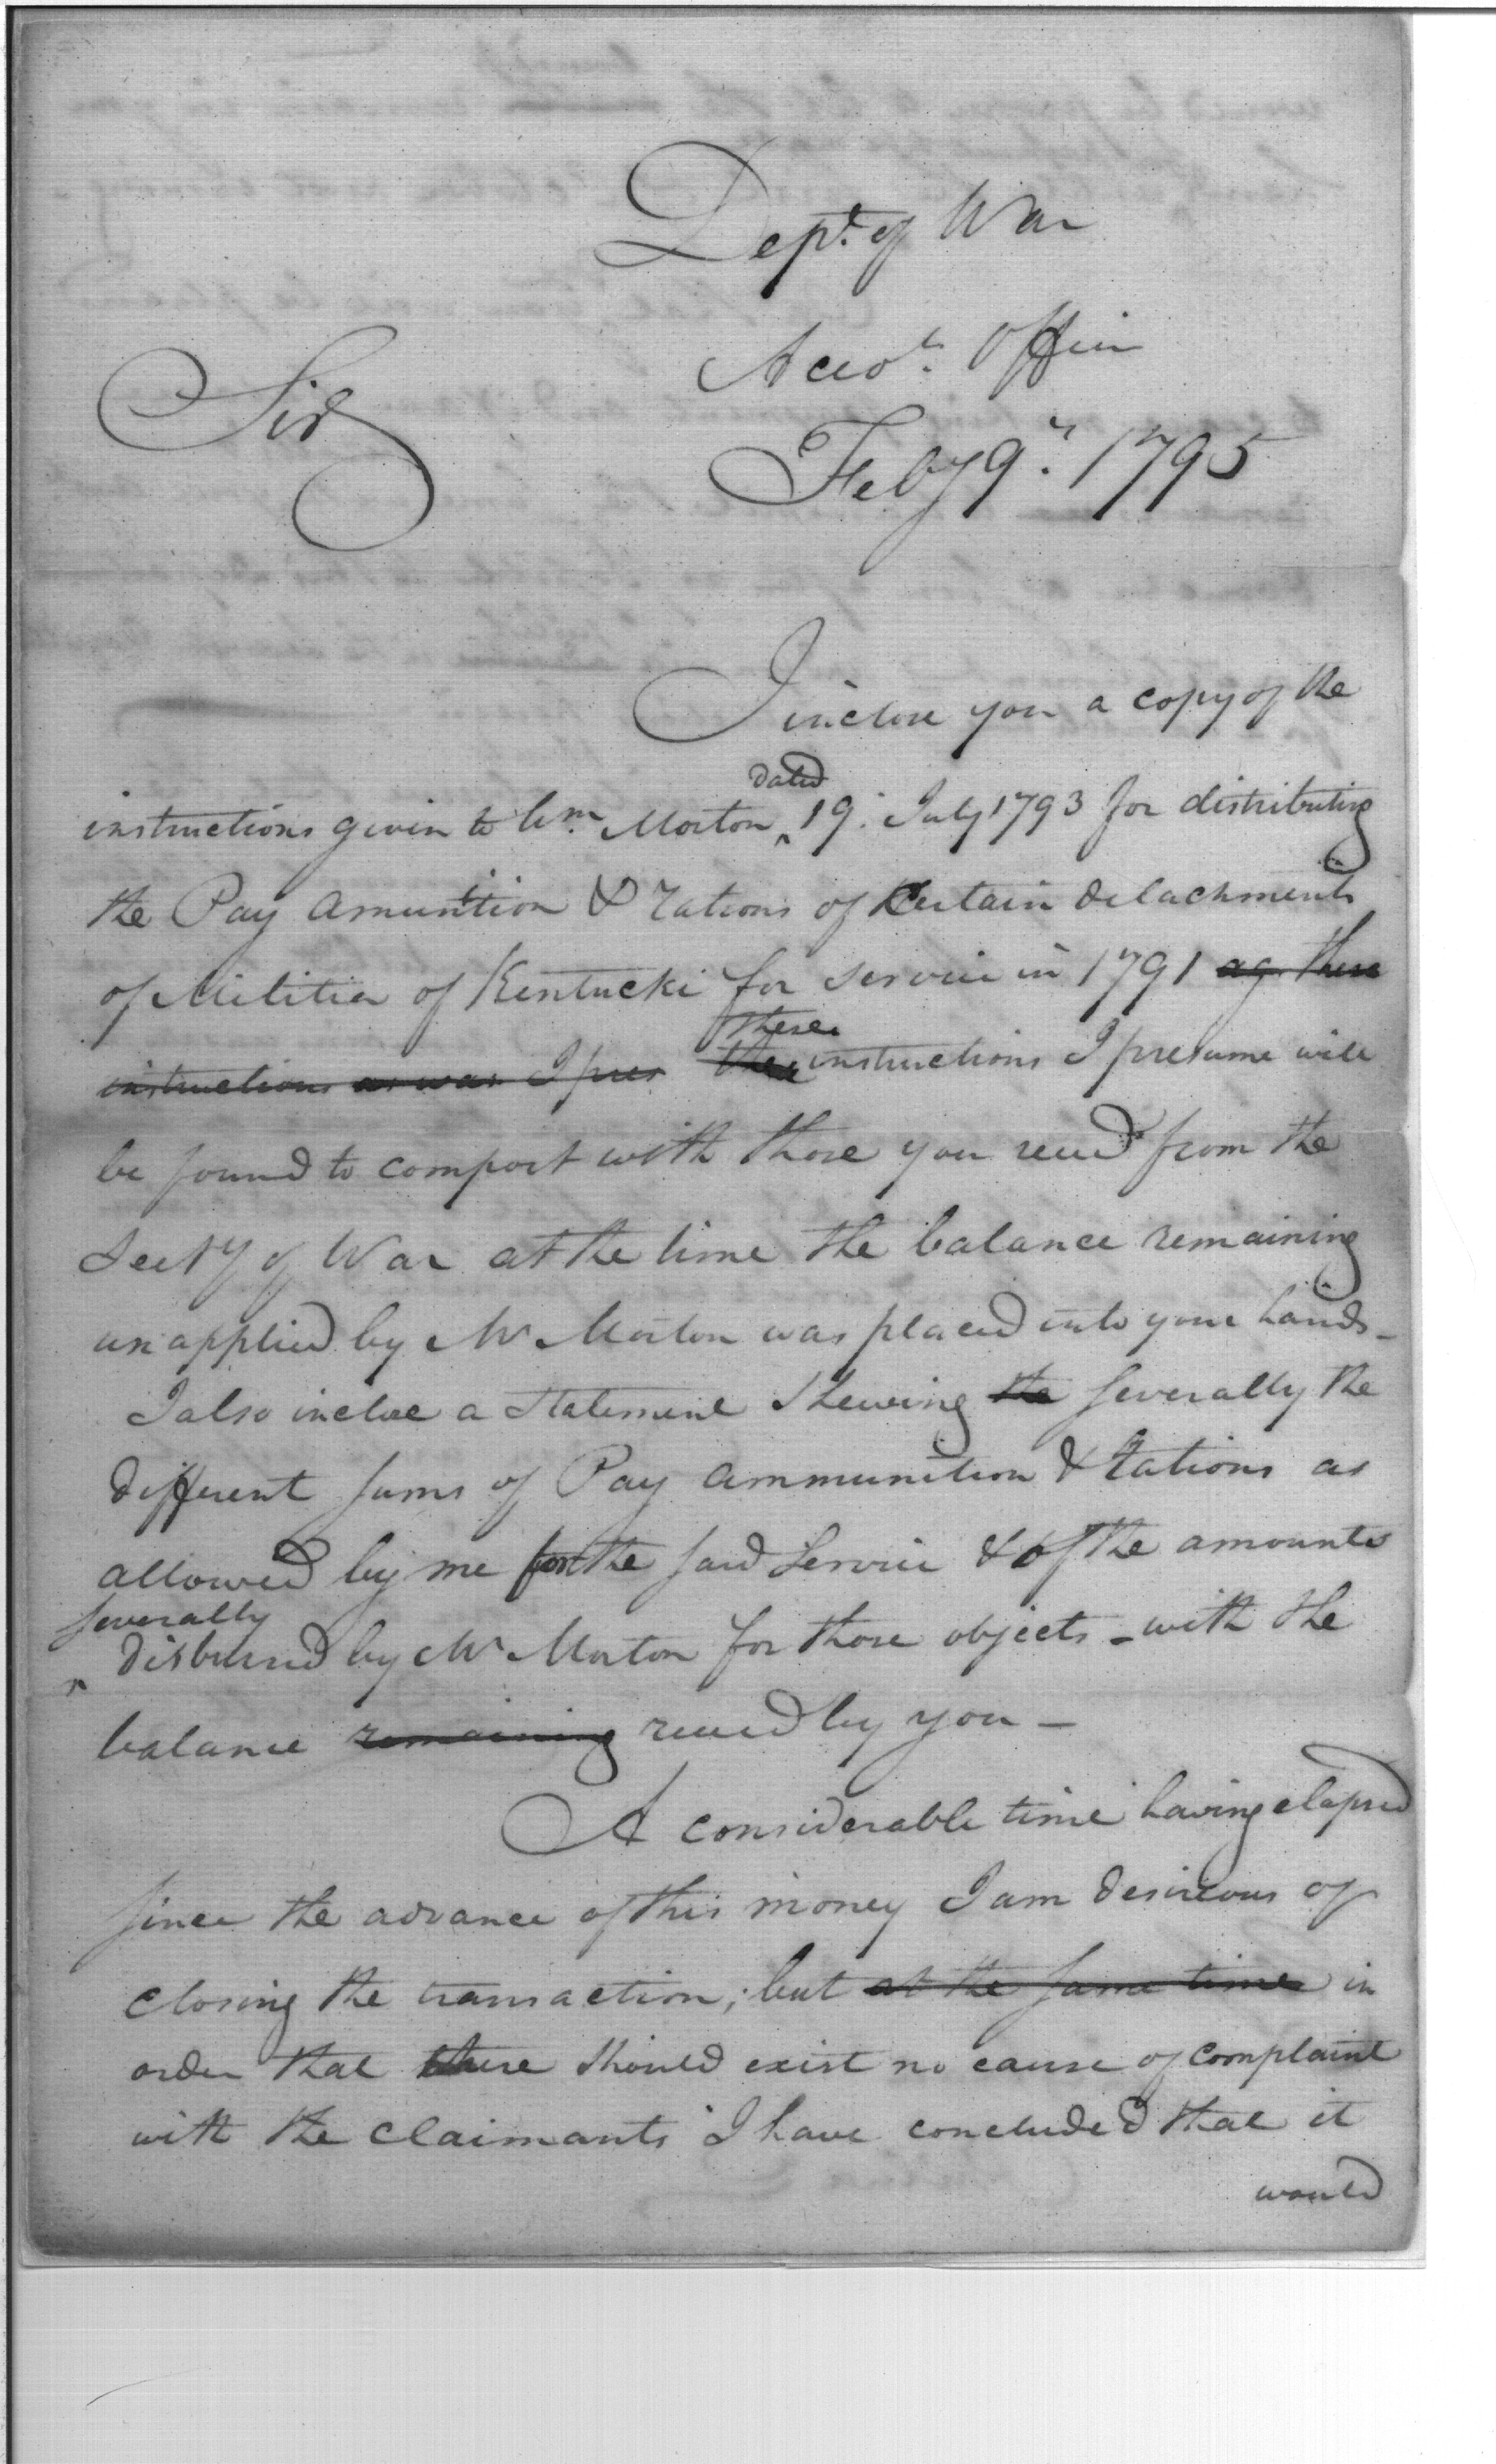 Dept. of War
Accots. Office
Sir
Feby 9th. 1795
I inclose you a copy of the
dated
instructions given to Wm. Morton ^ 19. July 1793 for distributing
the Pay Amunition & rations of Certain detachments
of Militia of Kentucki for service in 1791 ag. these
instructions as was I pres
these
the instructions I presume will
be found to comport with those you recd from the
Secty of War at the time the balance remaining
unapplied by Mr Morton was placed into your hands_
I also inclose a Statement Shewing the severally the
different sums of Pay ammunition & rations as
allowed by me for the said Service & of the amounts
severally
^ disbursed by Mr Morton for those objects - with the
balance remaining recd by you -
A considerable time having elapsed
since the advance of this money I am desireous of
closing the transaction; but at the same time in
order that there should exist no cause of complaint
with the claimants I have concluded that it
would